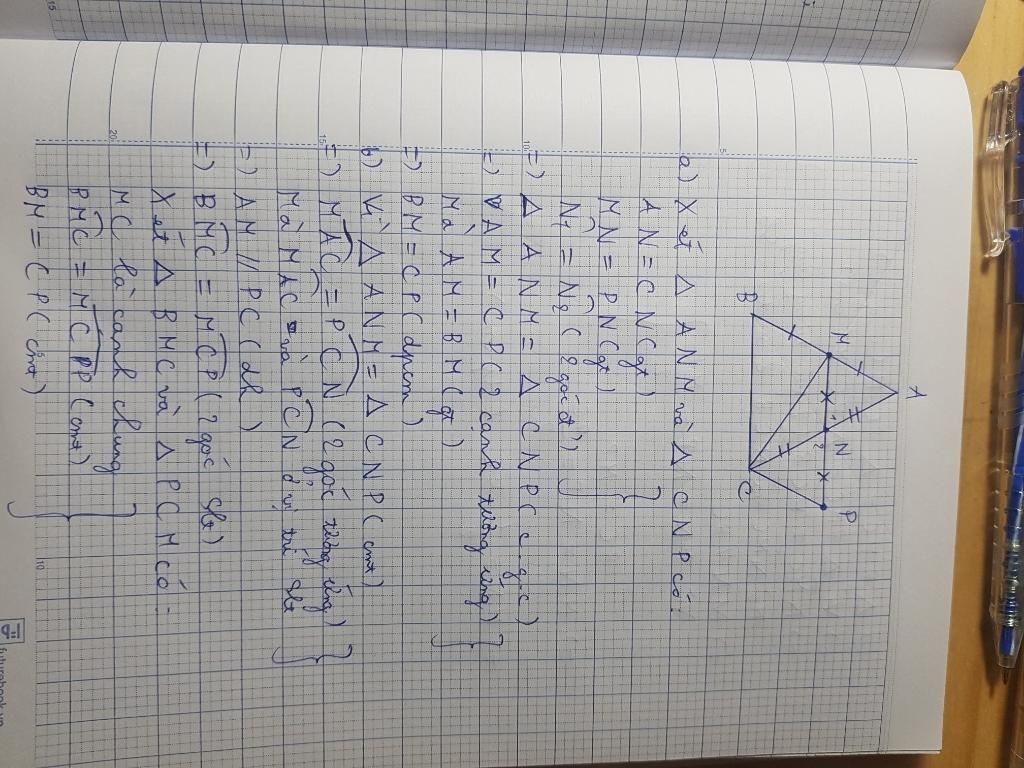 A
M
N
P
1
2
B
C
5
a) Xét Δ ANM và Δ CNP có:
AN = CN (gt)
MN = PN (gt)
N1 = N2 (2 góc đ²)
10
=) Δ ANM = Δ CNP (c.g.c)
=) AM = CP (2 cạnh tương ứng)
Mà AM = BM (gt)
=) BM = CP (đpcm)
b) Vì Δ ANM = Δ CNP (cmt)
15
=) MAC = PCN (2 góc tương ứng)
Mà MAC và PCN ở vị trí slt
=) AM // PC (dh)
=) BMC = MCP (2 góc slt)
Xét Δ BMC và Δ PCM có:
20
MC là cạnh chung
BMC = MCP (cmt)
BM = CP (cmt)
5
10
15
futurebook.vn